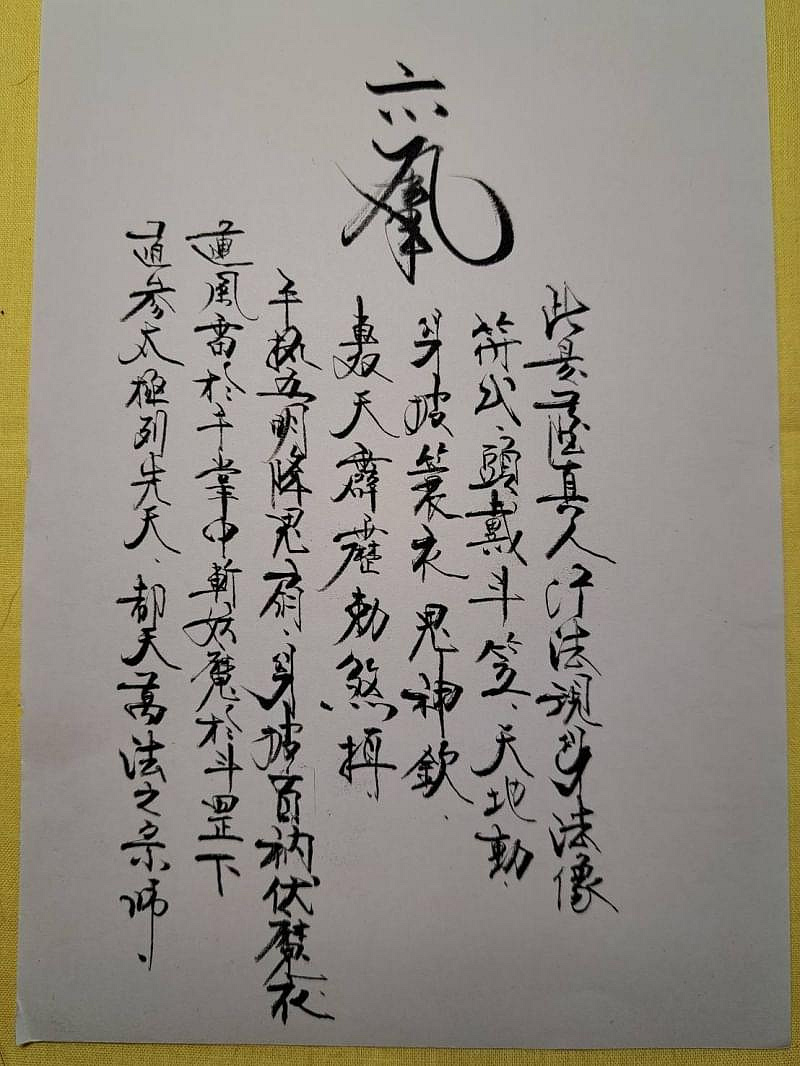 六
此是薩真人行法現身法像
符式、頭戴斗笠、天地動、
身披簑衣鬼神欽、
轟天霹靂勅煞摂、
手执五明降鬼扇、身披百衲伏魔衣
運風雷於手掌中斬妖魔於斗罡下
道参太極列先天、都天萬法之宗師、